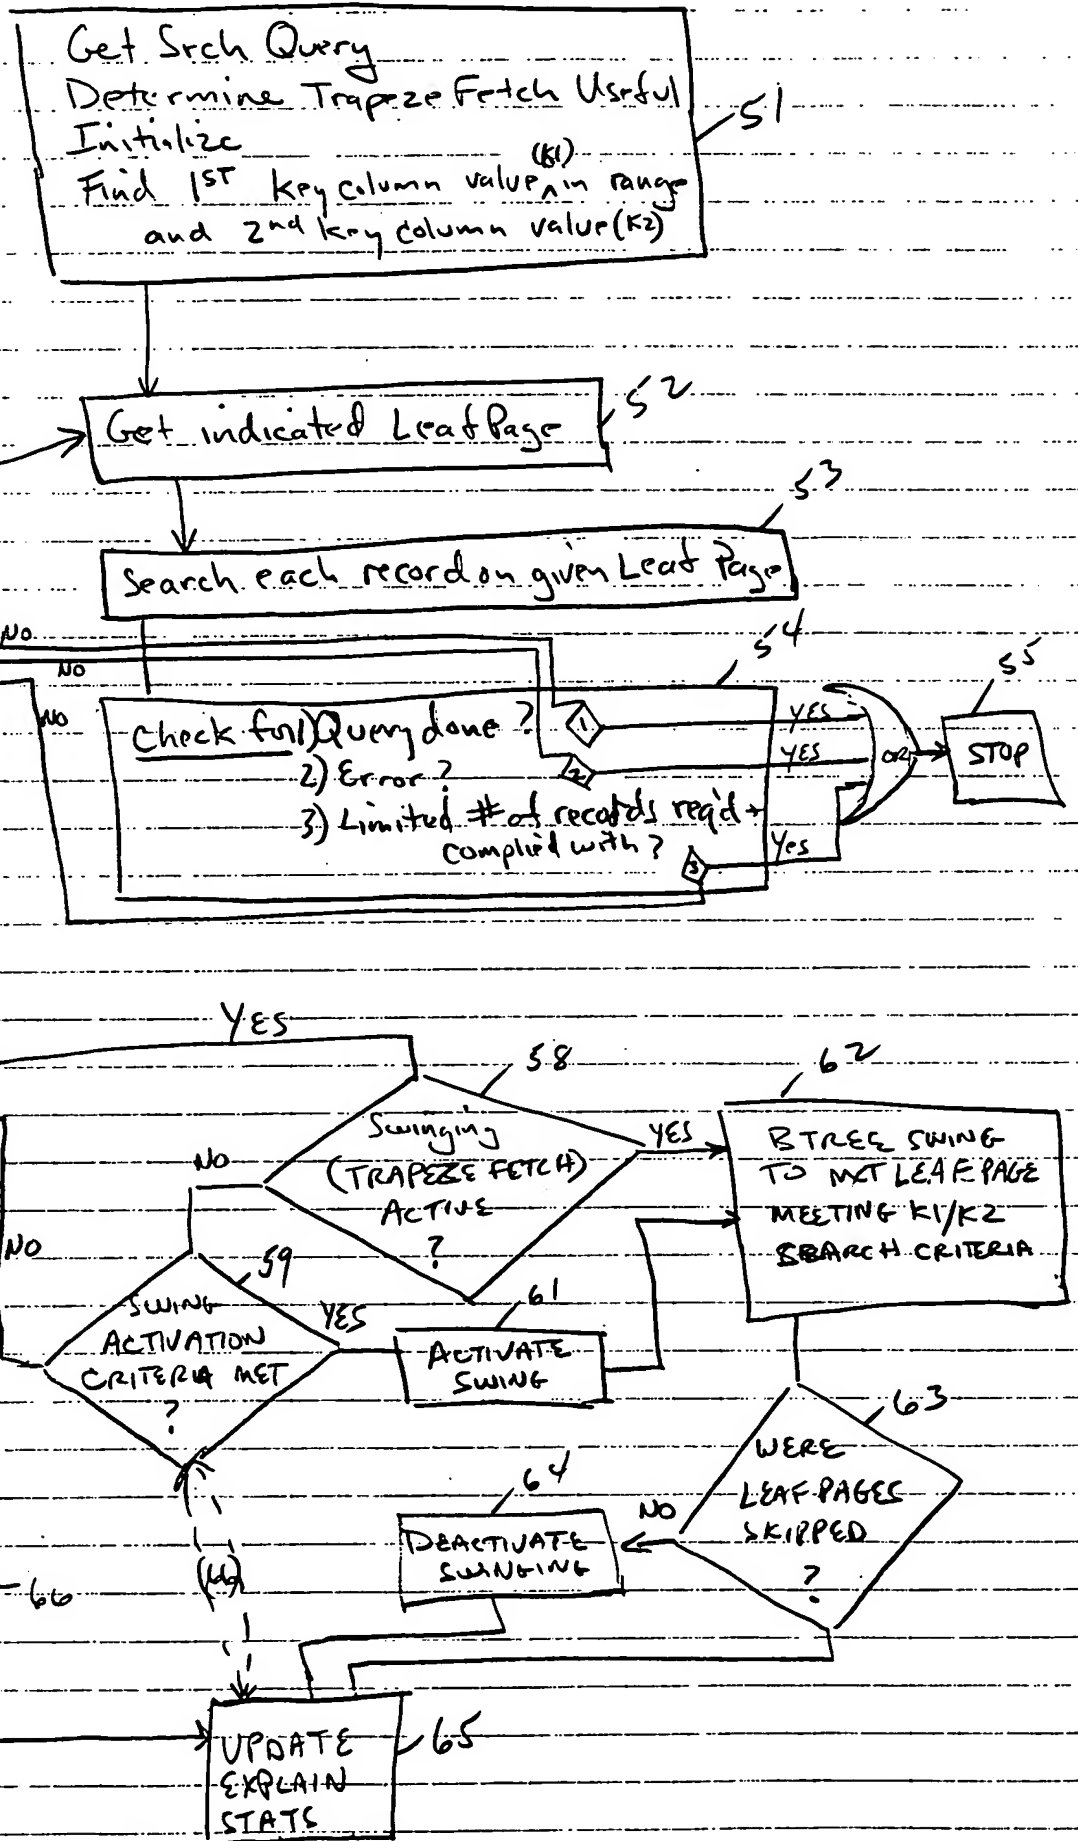 Get Srch Query
Determine Trapeze Fetch Useful
Initialize
(K1)
Find 1ST key column value ^ in range
and 2nd key column value (K2)
51
Get indicated Leaf Page
52
53
Search each record on given Leaf Page
No
No
NO
54
55
Check for 1) Query done ?
2) Error ?
3) Limited # of records req'd +
complied with ?
1
2
3
YES
YES
Yes
OR
STOP
YES
58
62
Swinging
(TRAPEZE FETCH)
ACTIVE
?
NO
YES
B TREE SWING
TO NXT LEAF PAGE
MEETING K1/K2
SEARCH CRITERIA
NO
59
SWING
ACTIVATION
CRITERIA MET
?
YES
61
ACTIVATE
SWING
63
WERE
LEAF PAGES
SKIPPED
?
NO
64
DEACTIVATE
SWINGING
66
(66)
65
UPDATE
EXPLAIN
STATS